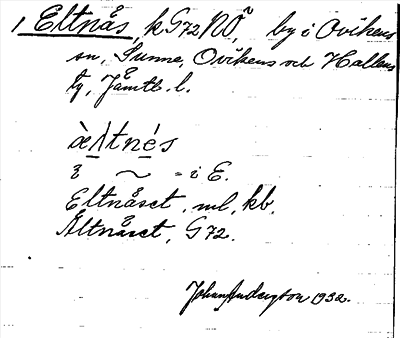 1 Eltnås, k G72NÖ, by i Ovikens
sn, Sunne, Ovikens och Hallens
tg, Jämtl. l.
àʌtnés
i ~ - i E.
Eltnåset, ml, kb.
Altnåset, G72.
Johan Anderzton 1932.